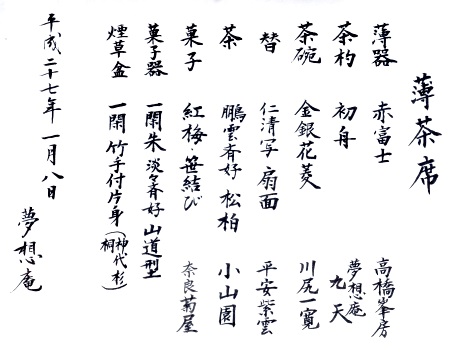 薄茶席
薄器 赤富士 高橋峯房
茶杓 初舟 夢想庵 九天
茶碗 金銀花菱 川尻一寛
替 仁清写 扇面 平安紫雲
茶 鵬雲斉好 松柏 小山園
菓子 紅梅・笹結び 奈良菊屋
菓子器 一閑朱 淡々斉好 山道型
煙草盆 一閑 竹手付片身(神代杉 桐)
平成二十七年 一月八日 夢想庵